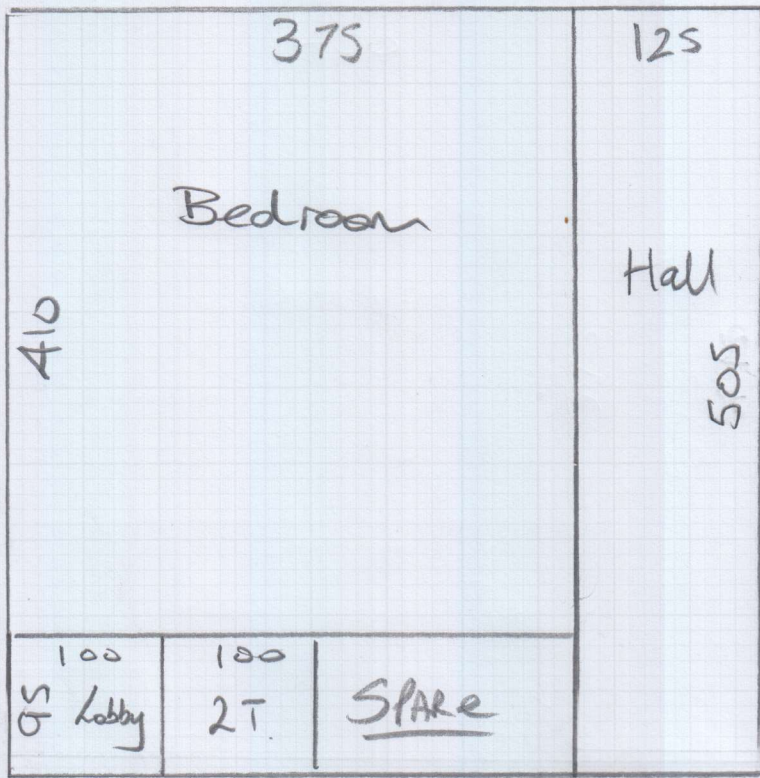 375
125
Bedroom
Hall
410
505
100
100
95 Lobby
2T.
SPARe